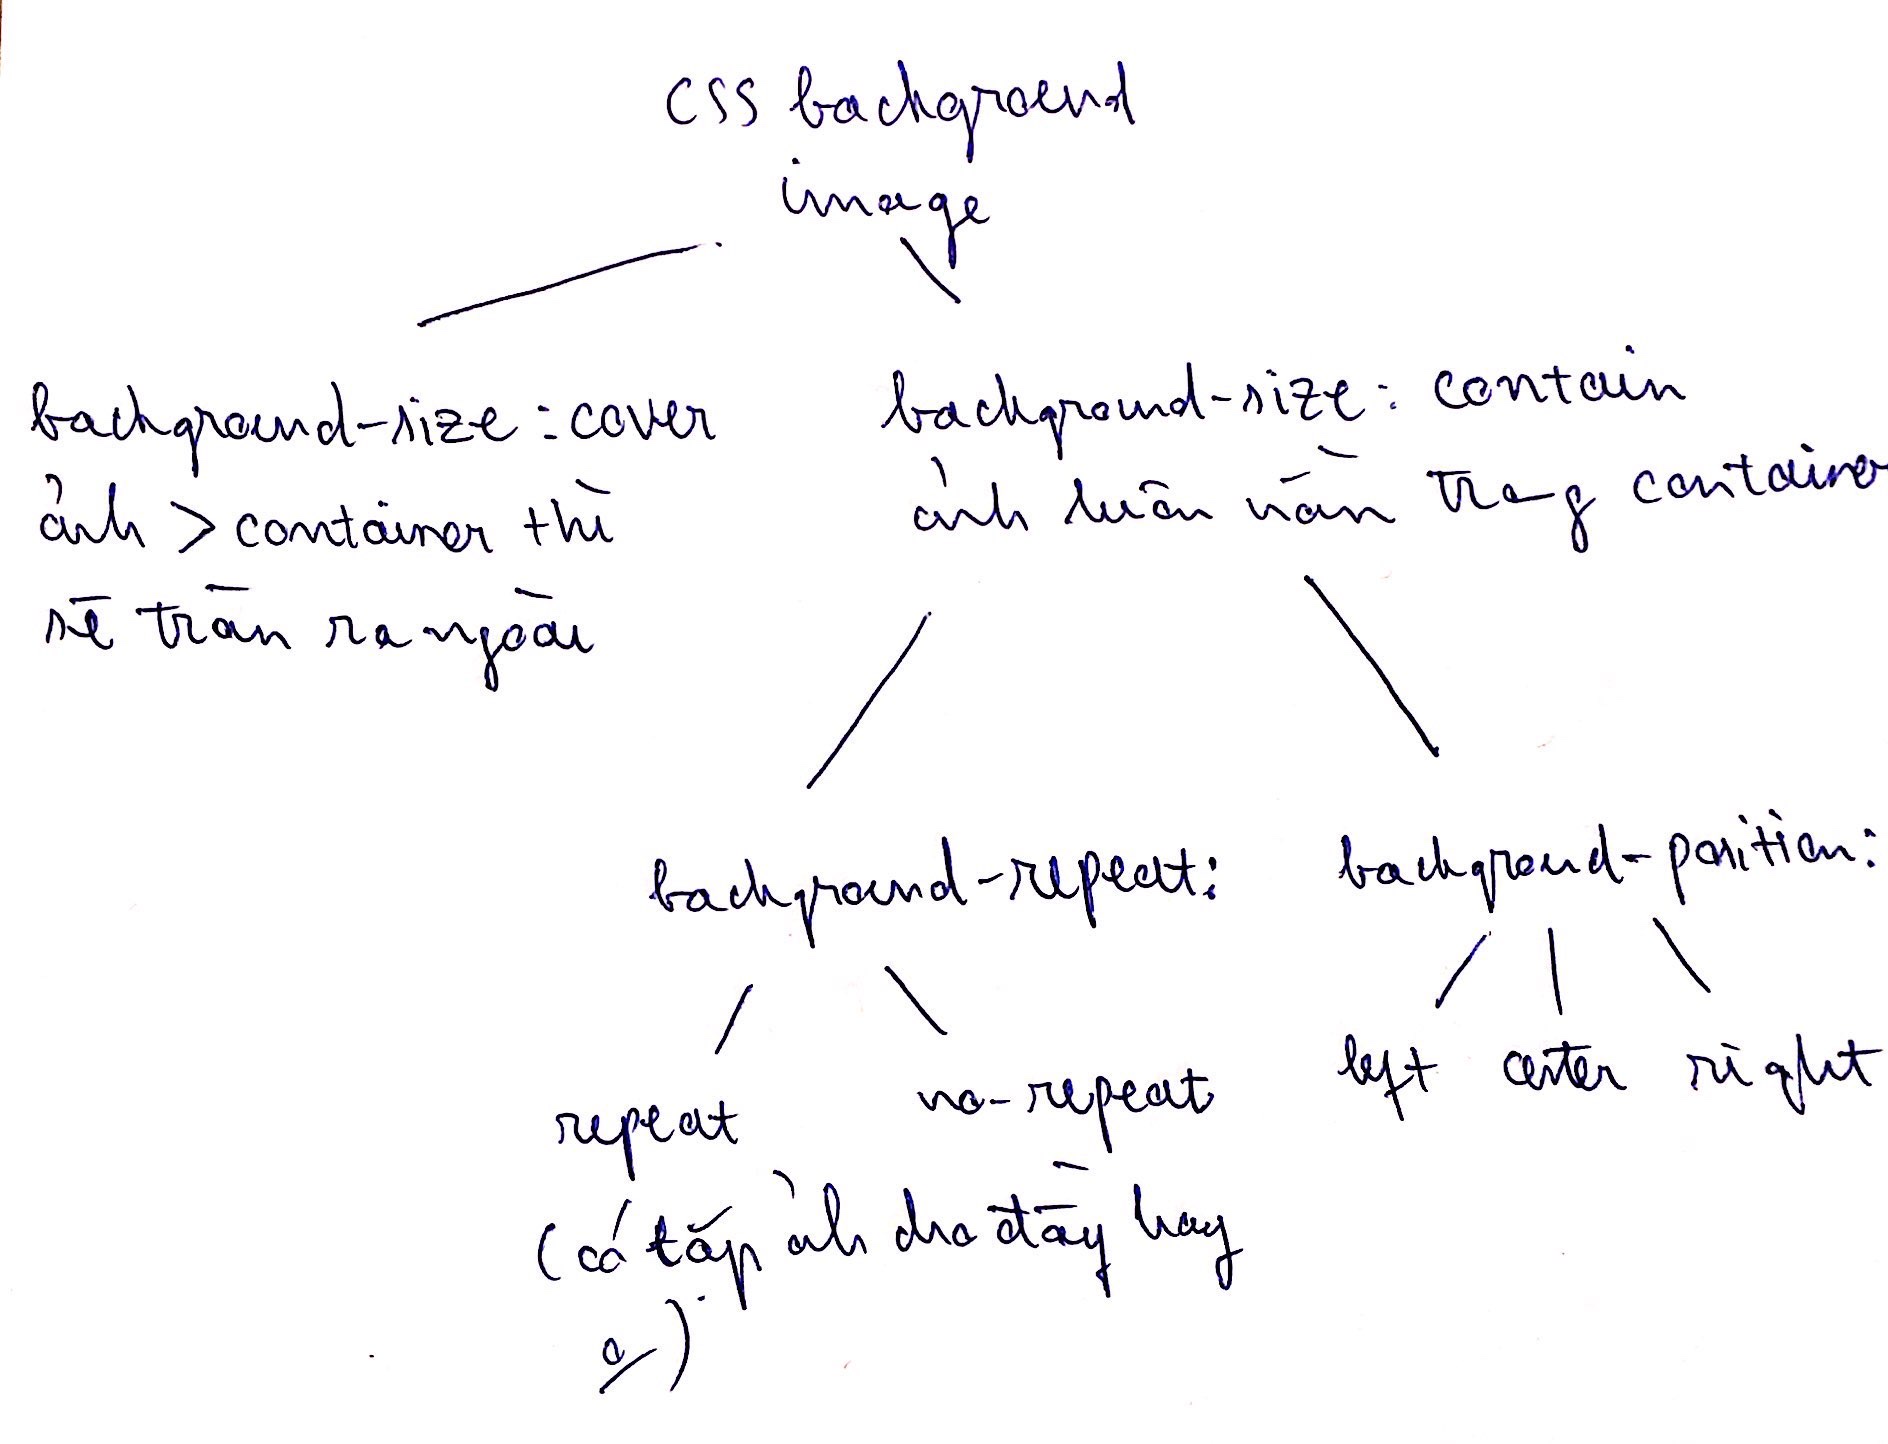 CSS background
image
background-size: cover
ảnh > container thì
sẽ tràn ra ngoài
background-size: contain
ảnh luôn nằm trong container
background-repeat:
repeat
no-repeat
(có lặp ảnh cho đầy hay
background-position:
left center right